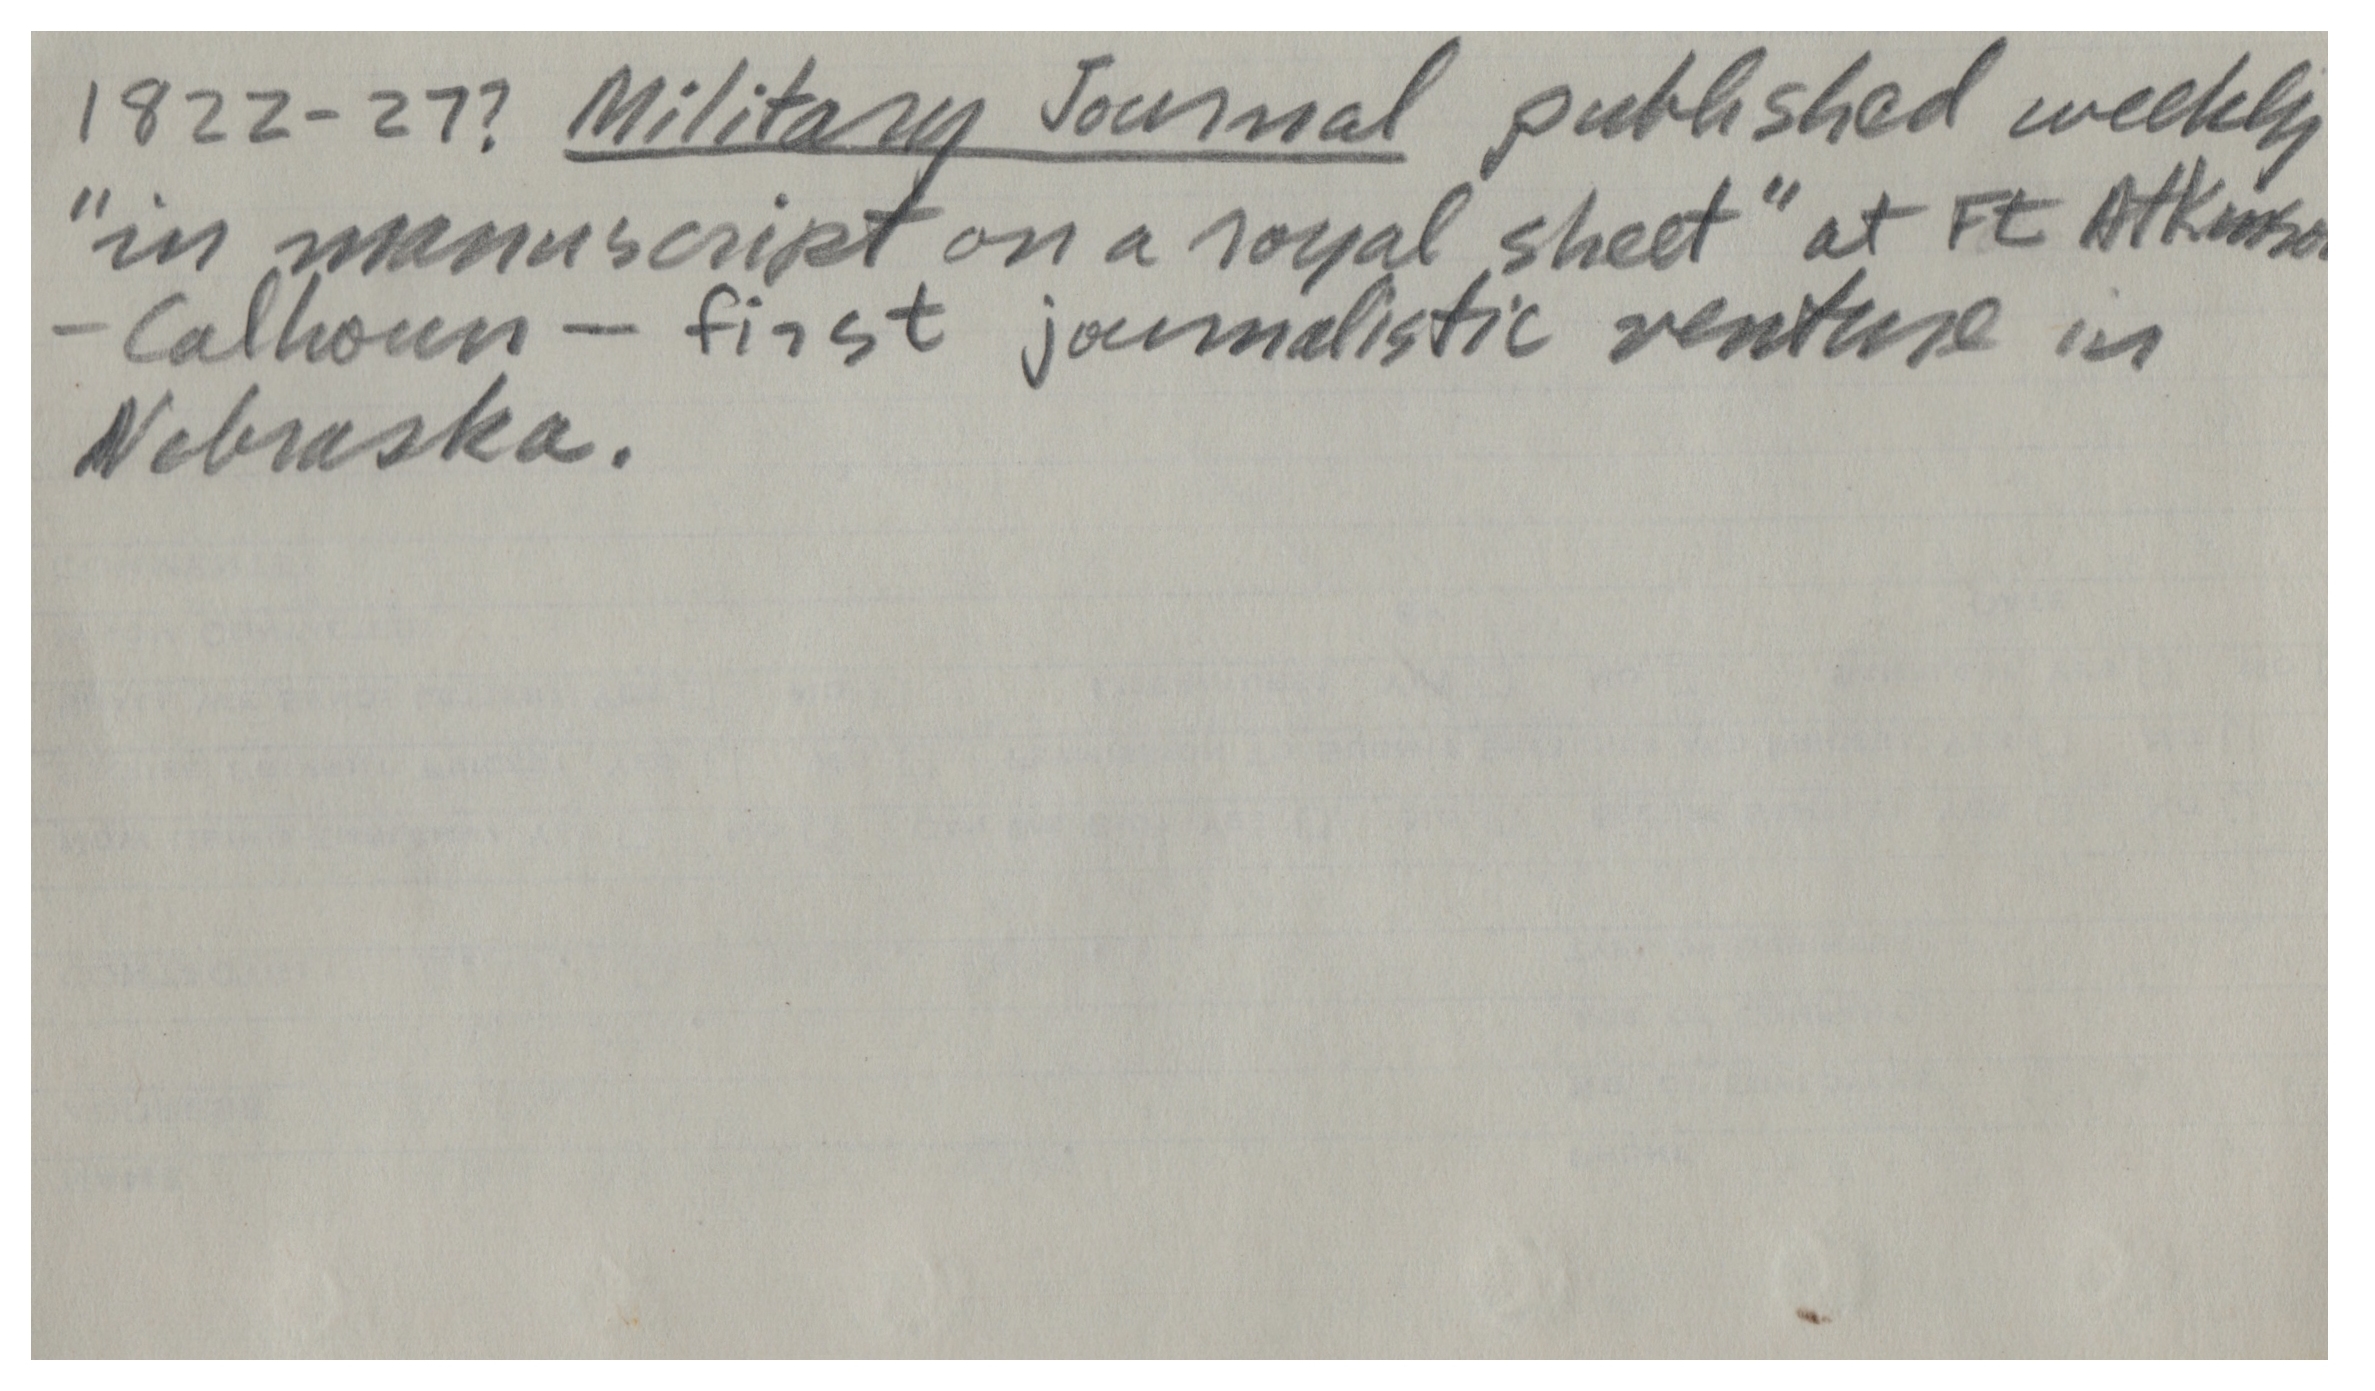 1822-27? Military Journal published weekly
"in manuscript on a royal sheet" at Ft Atkinson
- Calhoun - first journalistic venture in
Nebraska.